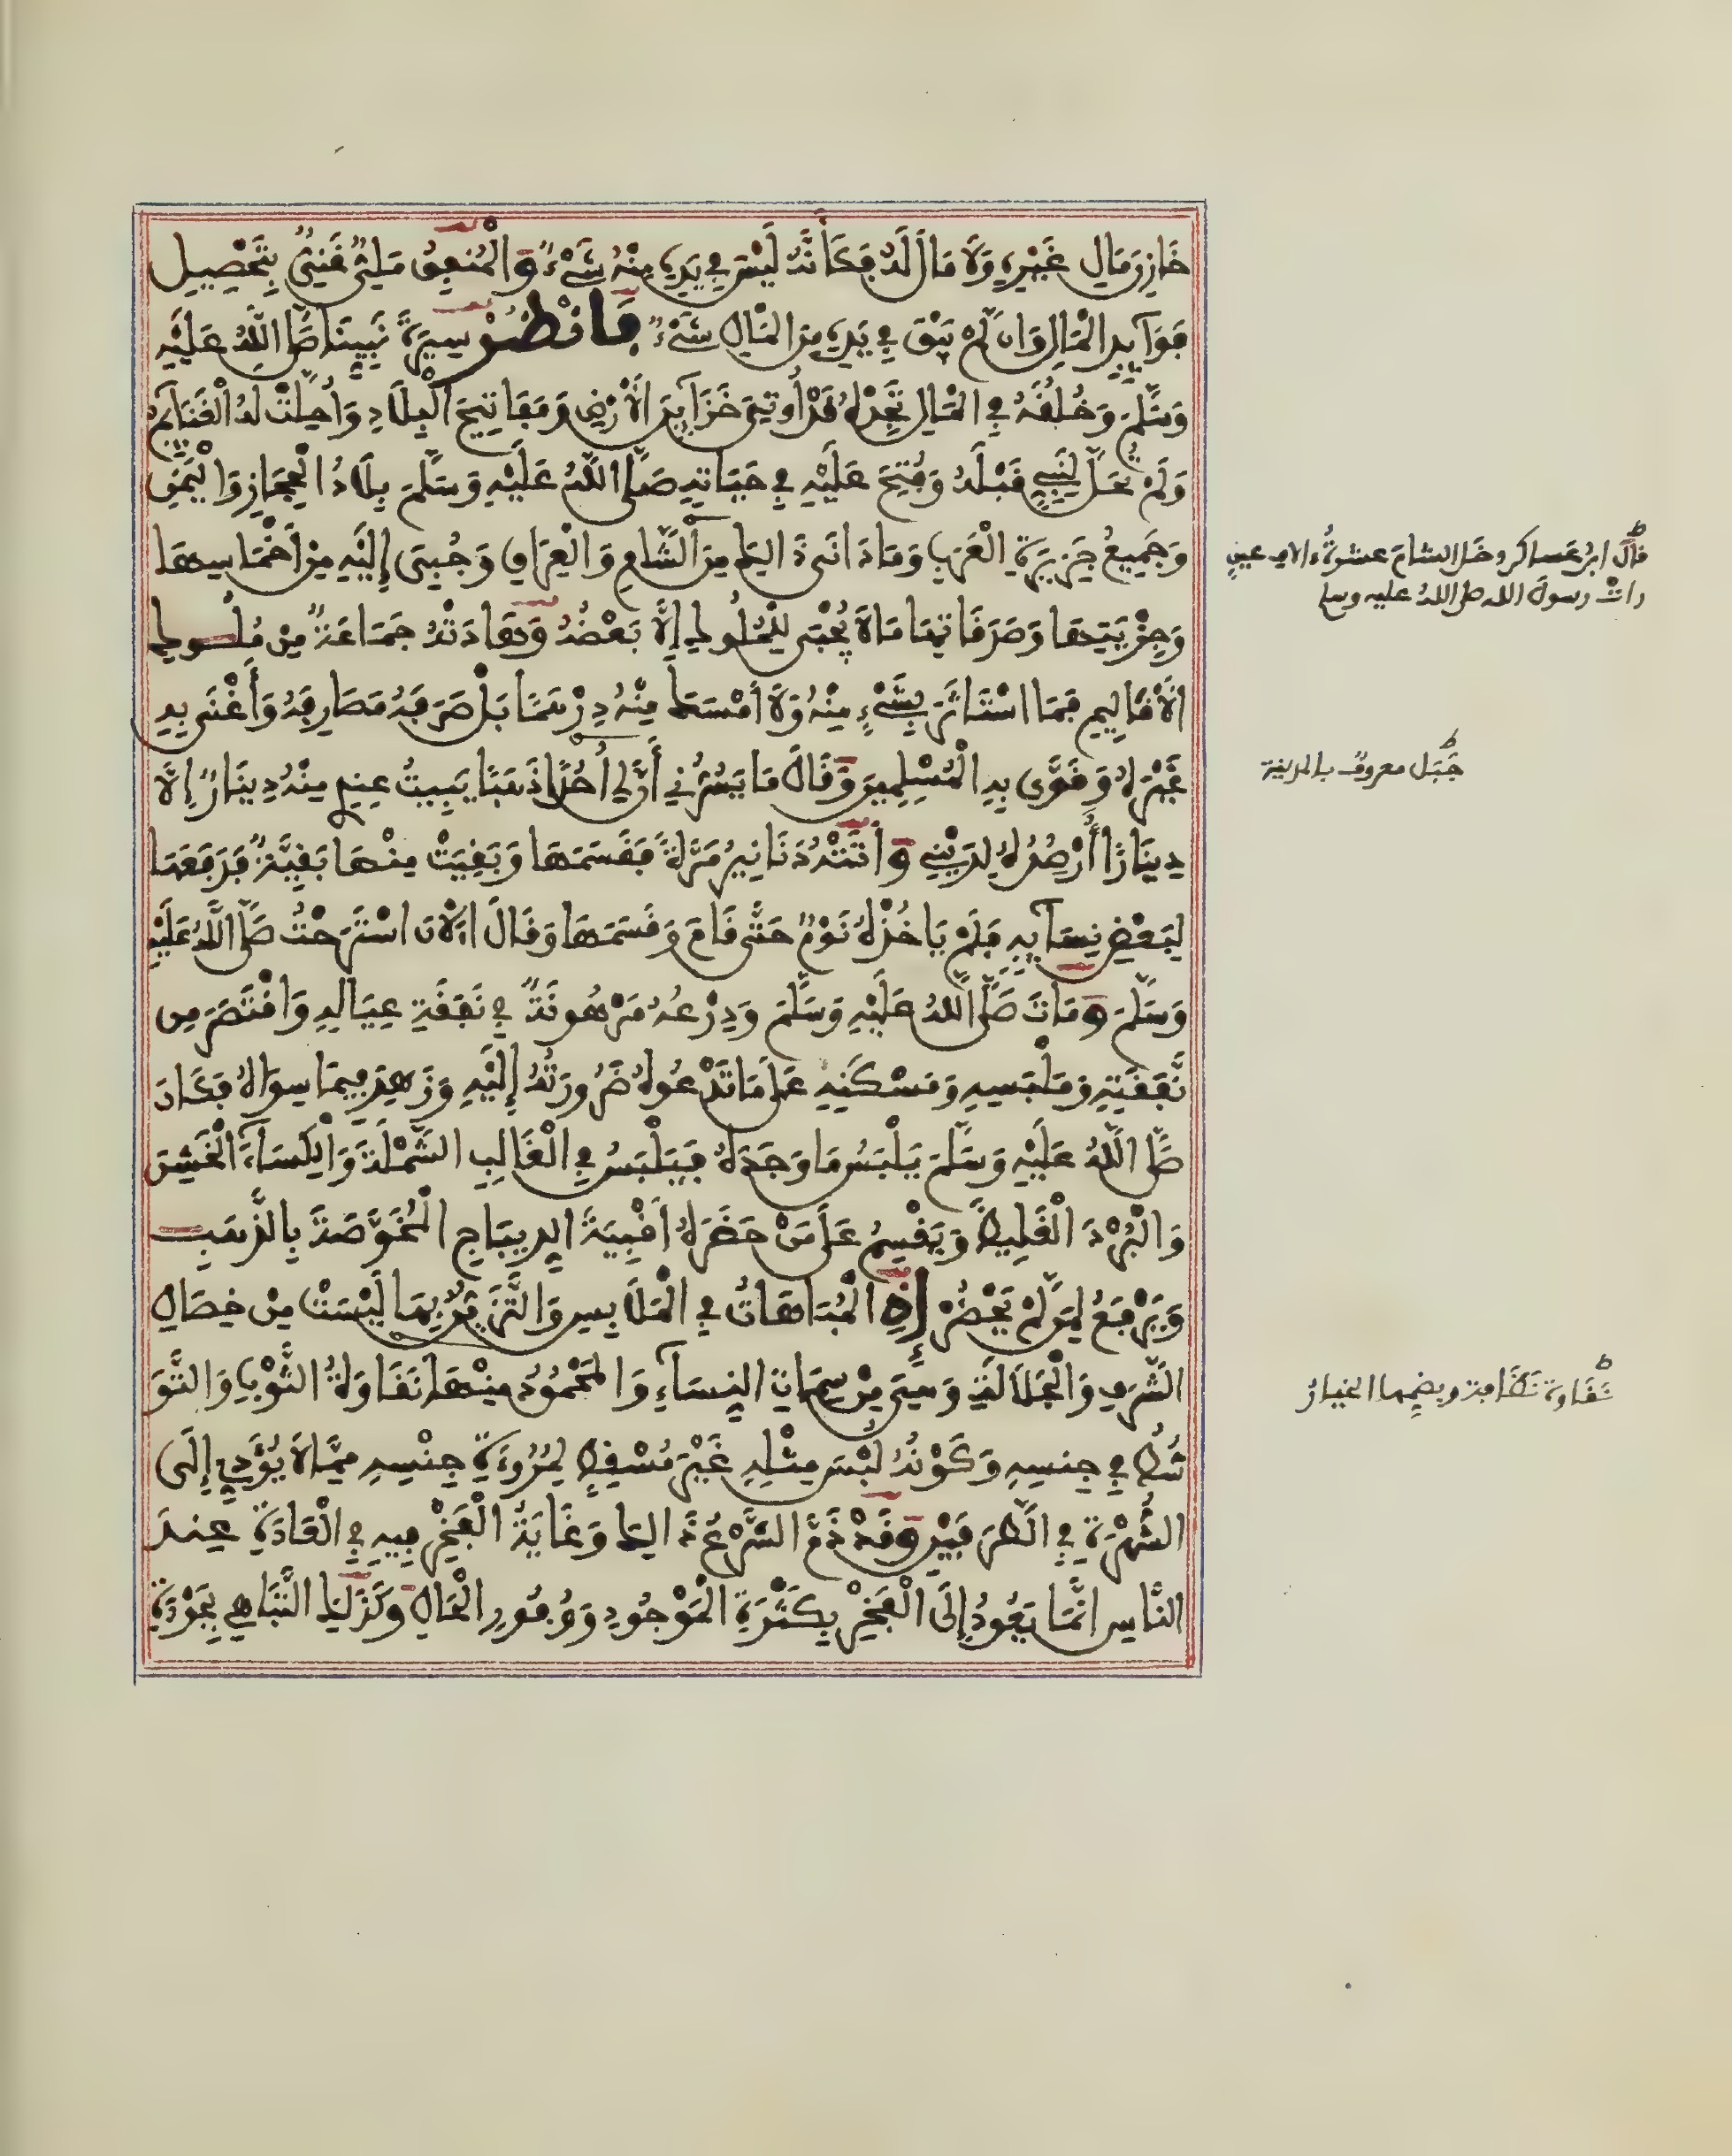 خَازِنُ مَالِ غَيْرِهِ وَلَا مَالَ لَهُ فَكَأَنَّهُ لَيْسَ فِي يَدِهِ مِنْهُ شَيْءٌ وَالْمُنْفِقُ مَلِيٌّ غَنِيٌّ بِتَحْصِيلِ
فَوَآئِدِ الْمَالِ وَإِن لَّمْ يَبْقَ فِي يَدِهِ مِنَ الْمَالِ شَيْءٌ فَانْظُرْ سِيرَةَ نَبِيِّنَا صَلَّى اللَّهُ عَلَيْهِ
وَسَلَّمَ وَخُلُقَهُ فِي الْمَالِ تَجِدْهُ قَدْ أُوتِيَ خَزَآئِنَ الْأَرْضِ وَمَفَاتِيحَ الْبِلَادِ وَأُحِلَّتْ لَهُ الْغَنَآئِمُ
وَلَمْ تَحِلَّ لِنَبِيٍّ قَبْلَهُ وَفُتِحَ عَلَيْهِ فِي حَيَاتِهِ صَلَّى اللَّهُ عَلَيْهِ وَسَلَّمَ بِلَادُ الْحِجَازِ وَالْيَمَنِ
وَجَمِيعُ جَزِيرَةِ الْعَرَبِ وَمَا دَانَى ذَالِكَ مِنَ الشَّامِ وَالْعِرَاقِ وَجُبِيَ إِلَيْهِ مِنْ أَخْمَاسِهَا
وَجِزْيَتِهَا وَصَدَقَاتِهَا مَا لَا يُجْبَى لِلْمُلُوكِ إِلَّا بَعْضُهُ وَهَادَتْهُ جَمَاعَةٌ مِنْ مُلُوكِ
الْأَقَالِيمِ فَمَا اسْتَاثَرَ بِشَيْءٍ مِنْهُ وَلَا أَمْسَكَ مِنْهُ دِرْهَمًا بَلْ صَرَفَهُ مَصَارِفَهُ وَأَغْنَى بِهِ
غَيْرَهُ وَقَوَّى بِهِ الْمُسْلِمِينَ وَقَالَ مَا يَسُرُّنِي أَنَّ لِي أُحُدًا ذَهَبًا يَبِيتُ عِنْدِي مِنْهُ دِينَارٌ إِلَّا
دِينَارًا أُرْصِدُهُ لِدَيْنِي وَأَتَتْهُ دَنَانِيرُ مَرَّةً فَقَسَمَهَا وَبَقِيَتْ مِنْهَا بَقِيَّةٌ فَدَفَعَهَا
لِبَعْضِ نِسَآئِهِ فَلَمْ يَاخُذْهُ نَوْمٌ حَتَّى قَامَ وَقَسَمَهَا وَقَالَ الْآنَ اسْتَرَحْتُ صَلَّى اللَّهُ عَلَيْهِ
وَسَلَّمَ وَمَاتَ صَلَّى اللَّهُ عَلَيْهِ وَسَلَّمَ وَدِرْعُهُ مَرْهُونَةٌ فِي نَفَقَةِ عِيَالِهِ وَاقْتَصَرَ مِن
نَّفَقَتِهِ وَمَلْبَسِهِ وَمَسْكَنِهِ عَلَى مَا تَدْعُوهُ ضَرُورَتُهُ إِلَيْهِ وَزَهِدَ فِيمَا سِوَاهُ فَكَانَ
صَلَّى اللَّهُ عَلَيْهِ وَسَلَّمَ يَلْبَسُ مَا وَجَدَهُ فَيَلْبَسُ فِي الْغَالِبِ الشَّمْلَةَ وَالْكِسَاءَ الْخَشِنَ
وَالْبُرْدَ الْغَلِيظَ وَيَقْسِمُ عَلَى مَنْ حَضَرَهُ أَقْبِيَةَ الدِّيبَاجِ الْمُخَوَّصَةَ بِالذَّهَبِ
وَيَرْفَعُ لِمَن لَّمْ يَحْضُرْ إِذِ الْمُبَاهَاتُ فِي الْمَلَابِسِ وَالتَّزَيُّنُ بِهَا لَيْسَتْ مِنْ خِصَالِ
الشَّرَفِ وَالْجَلَالَةِ وَهِيَ مِنْ سِمَاتِ النِّسَآءِ وَالْمَحْمُودُ مِنْهَا نَقَاوَةُ الثَّوْبِ وَالتَّوَ
سُّطُ فِي جِنسِهِ وَكَوْنُهُ لُبْسَ مِثْلِهِ غَيْرَ مُسْقِطٍ لِمُرُوءَةِ جِنْسِهِ مِمَّا لَا يُؤَدِّي إِلَى
الشُّهْرَةِ فِي الطَّرَفَيْنِ وَقَدْ ذَمَّ الشَّرْعُ ذَالِكَ وَغَايَةُ الْفَخْرِ فِيهِ فِي الْعَادَةِ عِندَ
النَّاسِ إِنَّمَا يَعُودُ إِلَى الْفَخْرِ بِكَثْرَةِ الْمَوْجُودِ وَوُفُورِ الْحَالِ وَكَذَلِكَ التَّبَاهِي بِجَوْدَةِ
قال ابن عساكر دخل الشام عشرة الاف عين
رات رسول الله صلى الله عليه وسلم
جَبَل معروف بالمدينة
نَقَاوة نَظَافة وبضمها الخيار